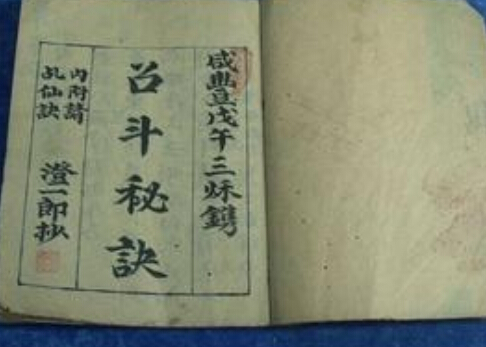 咸豐戊午三秌鐫
召斗秘訣
內附請
乩仙訣
澄一郎抄